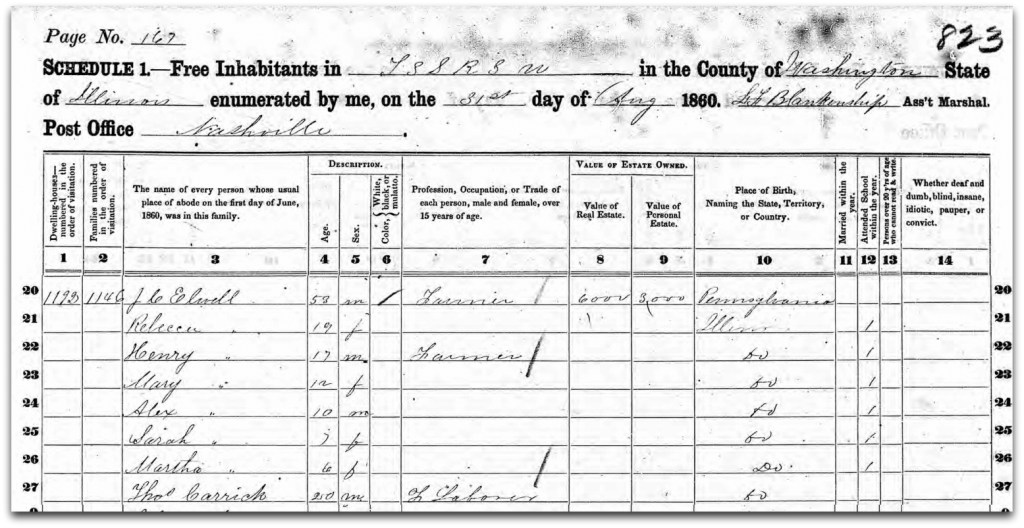 823
Page No. 167
SCHEDULE 1.—Free Inhabitants in T 3 S R 3 W in the County of Washington State
of Illinois enumerated by me, on the 31st day of Aug 1860. Blankenship Ass't Marshal.
Post Office Nashville.
Dwelling-houses—numbered in the order of visitation.
Families numbered in the order of visitation.
The name of every person whose usual place of abode on the first day of June, 1860, was in this family.
DESCRIPTION.
Age.
Sex.
Color, { White, black, or mulatto.
Profession, Occupation, or Trade of each person, male and female, over 15 years of age.
VALUE OF ESTATE OWNED.
Value of Real Estate.
Value of Personal Estate.
Place of Birth, Naming the State, Territory, or Country.
Married within the year.
Attended School within the year.
Persons over 20 y'rs of age who cannot read & write.
Whether deaf and dumb, blind, insane, idiotic, pauper, or convict.
1 2 3 4 5 6 7 8 9 10 11 12 13 14
20 1193 1146 J C Elwell 53 m Farmer 6000 3,000 Pennsylvania 20
21 Rebecca " 19 f Illinois 1 21
22 Henry " 17 m Farmer do 1 22
23 Mary " 12 f do 1 23
24 Alex " 10 m do 1 24
25 Sarah " 7 f do 1 25
26 Martha " 6 f Do 1 26
27 Thos Carrick 20 m F Laborer do 27